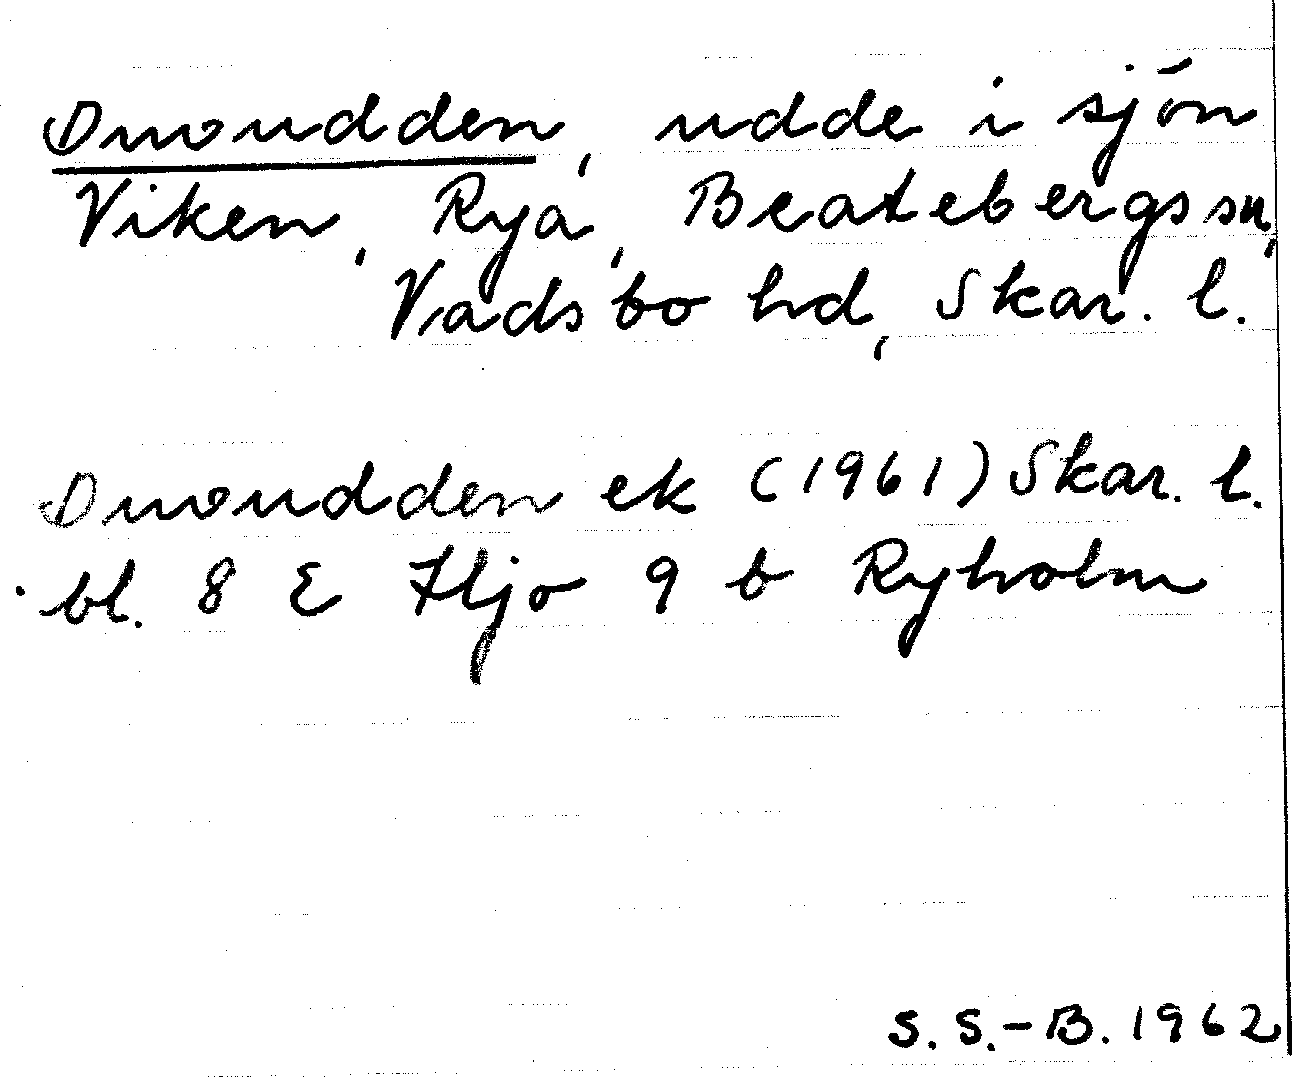 Duvoudden, udde i sjön
Viken, Rya, Beatebergs sn,
Vadsbo hd, Skar. l.
Duvoudden ek (1961) Skar. l.
bl. 8 E Hjo 9 b Ryholm
S. S.-B. 1962